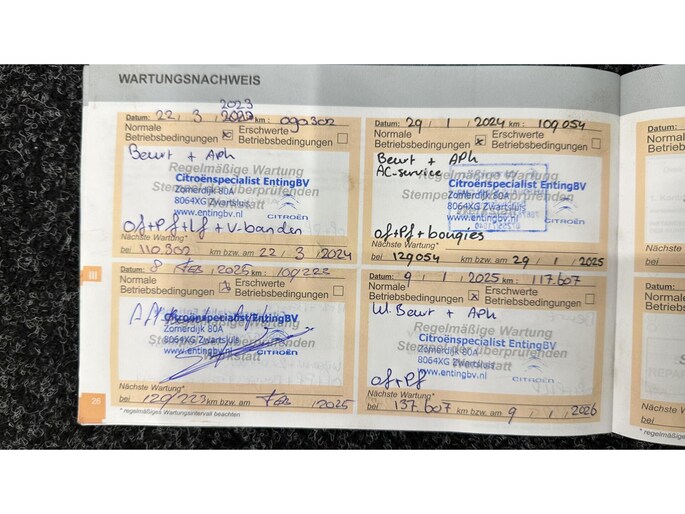 WARTUNGSNACHWEIS
2023
Datum: 22 / 3 / 2022 km: 090302
Normale Betriebsbedingungen x Erschwerte Betriebsbedingungen
Beurt + APK
Regelmäßige Wartung
Citroënspecialist EntingBV
Zomerdijk 80A
8064XG Zwartsluis
www.entingbv.nl
CITROËN
of+Pf+lf + V-banden
Nächste Wartung*
bei 110.302 km bzw. am 22 / 3 / 2024
Datum: 29 / 1 / 2024 km: 109.054
Normale Betriebsbedingungen x Erschwerte Betriebsbedingungen
Beurt + APK
AC-service
Regelmäßige Wartung
Citroënspecialist EntingBV
Zomerdijk 80A
8064XG Zwartsluis
www.entingbv.nl
CITROËN
of+Pf+bougies
Nächste Wartung*
bei 129054 km bzw. am 29 / 1 / 2025
Datum: 8 / Feb / 2025 km: 109223
Normale Betriebsbedingungen x Erschwerte Betriebsbedingungen
Citroënspecialist EntingBV
Zomerdijk 80A
8064XG Zwartsluis
www.entingbv.nl
CITROËN
Nächste Wartung*
bei 129223 km bzw. am Feb / 2025
Datum: 9 / 1 / 2025 km: 117.607
Normale Betriebsbedingungen x Erschwerte Betriebsbedingungen
kl. Beurt + APK
Regelmäßige Wartung
Stempel der überprüfenden
Citroënspecialist EntingBV
Zomerdijk 80A
8064XG Zwartsluis
www.entingbv.nl
CITROËN
of+Pf
Nächste Wartung*
bei 137.607 km bzw. am 9 / 1 / 2026
* regelmäßiges Wartungsintervall beachten
III
26
Datum:
Normale
Betriebsbedingungen
Nächste Wartung*
bei
Datum:
Normale
Betriebsbedingungen
Nächste Wartung*
bei